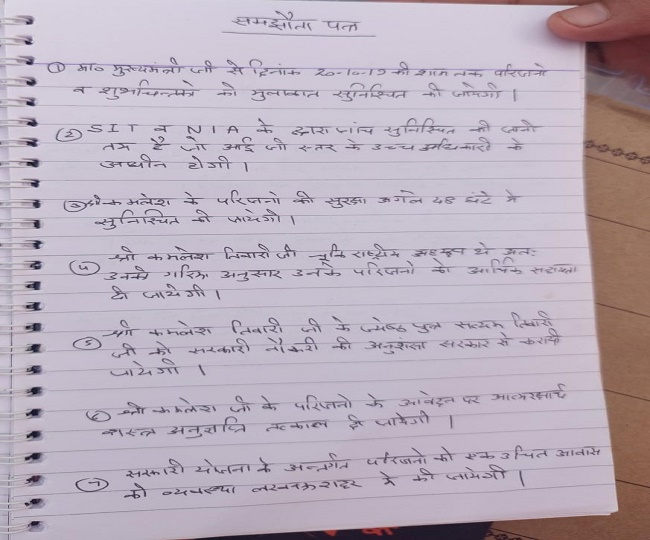 समझौता पत्र
① मा० मुख्यमंत्री जी से दिनांक 20-10-19 की शाम तक परिजनो
व शुभचिन्तको की मुलाकात सुनिश्चित की जायेगी।
② SIT व NIA के द्वारा जांच सुनिश्चित की जानी
तय है जो आई जी स्तर के उच्च अधिकारी के
अधीन होगी।
③ श्री कमलेश के परिजनो की सुरक्षा अगले 48 घंटे मे
सुनिश्चित की जायेगी।
④ श्री कमलेश तिवारी जी चूकि राष्ट्रीय अध्यक्ष थे अतः
उनकी गरिमा अनुसार उनके परिजनो को आर्थिक सहायता
दी जायेगी।
⑤ श्री कमलेश तिवारी जी के ज्येष्ठ पुत्र सत्यम तिवारी
जी को सरकारी नौकरी की अनुशंसा सरकार से करायी
जायेगी।
⑥ श्री कमलेश जी के परिजनो के आवेदन पर आत्मरक्षार्थ
शस्त्र अनुज्ञप्ति तत्काल दी जायेगी।
⑦ सरकारी योजना के अन्तर्गत परिजनो को एक उचित आवास
की व्यवस्था लखनऊ शहर मे की जायेगी।